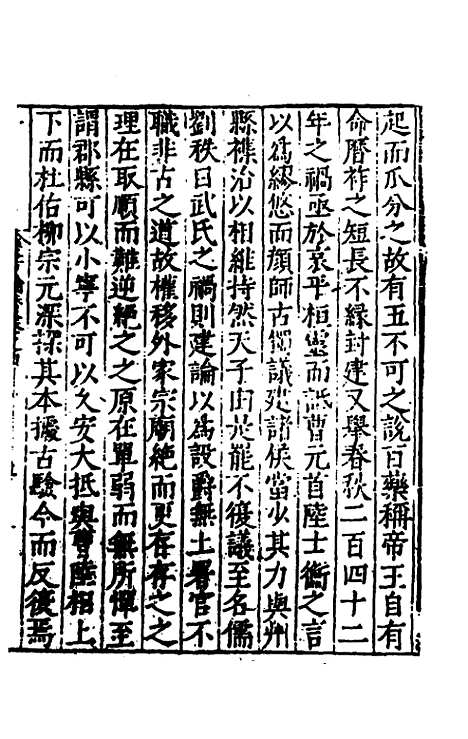 起而瓜分之故有五不可之説百藥稱帝王自有
命曆祚之短長不緣封建又舉春秋二百四十二
年之禍亟於哀平桓靈而詆曹元首陸士衡之言
以為繆悠而顏師古獨議建諸侯當少其力與州
縣襍治以相維持然天子由是罷不復議至名儒
劉秩曰武氏之禍則建論以為設爵無土署官不
職非古之道故權移外家宗廟絶而更存存之之
理在取順而難逆絶之之原在單弱而無所憚至
謂郡縣可以小寧不可以久安大抵與曹陸相上
下而杜佑柳宗元深探其本據古驗今而反復焉